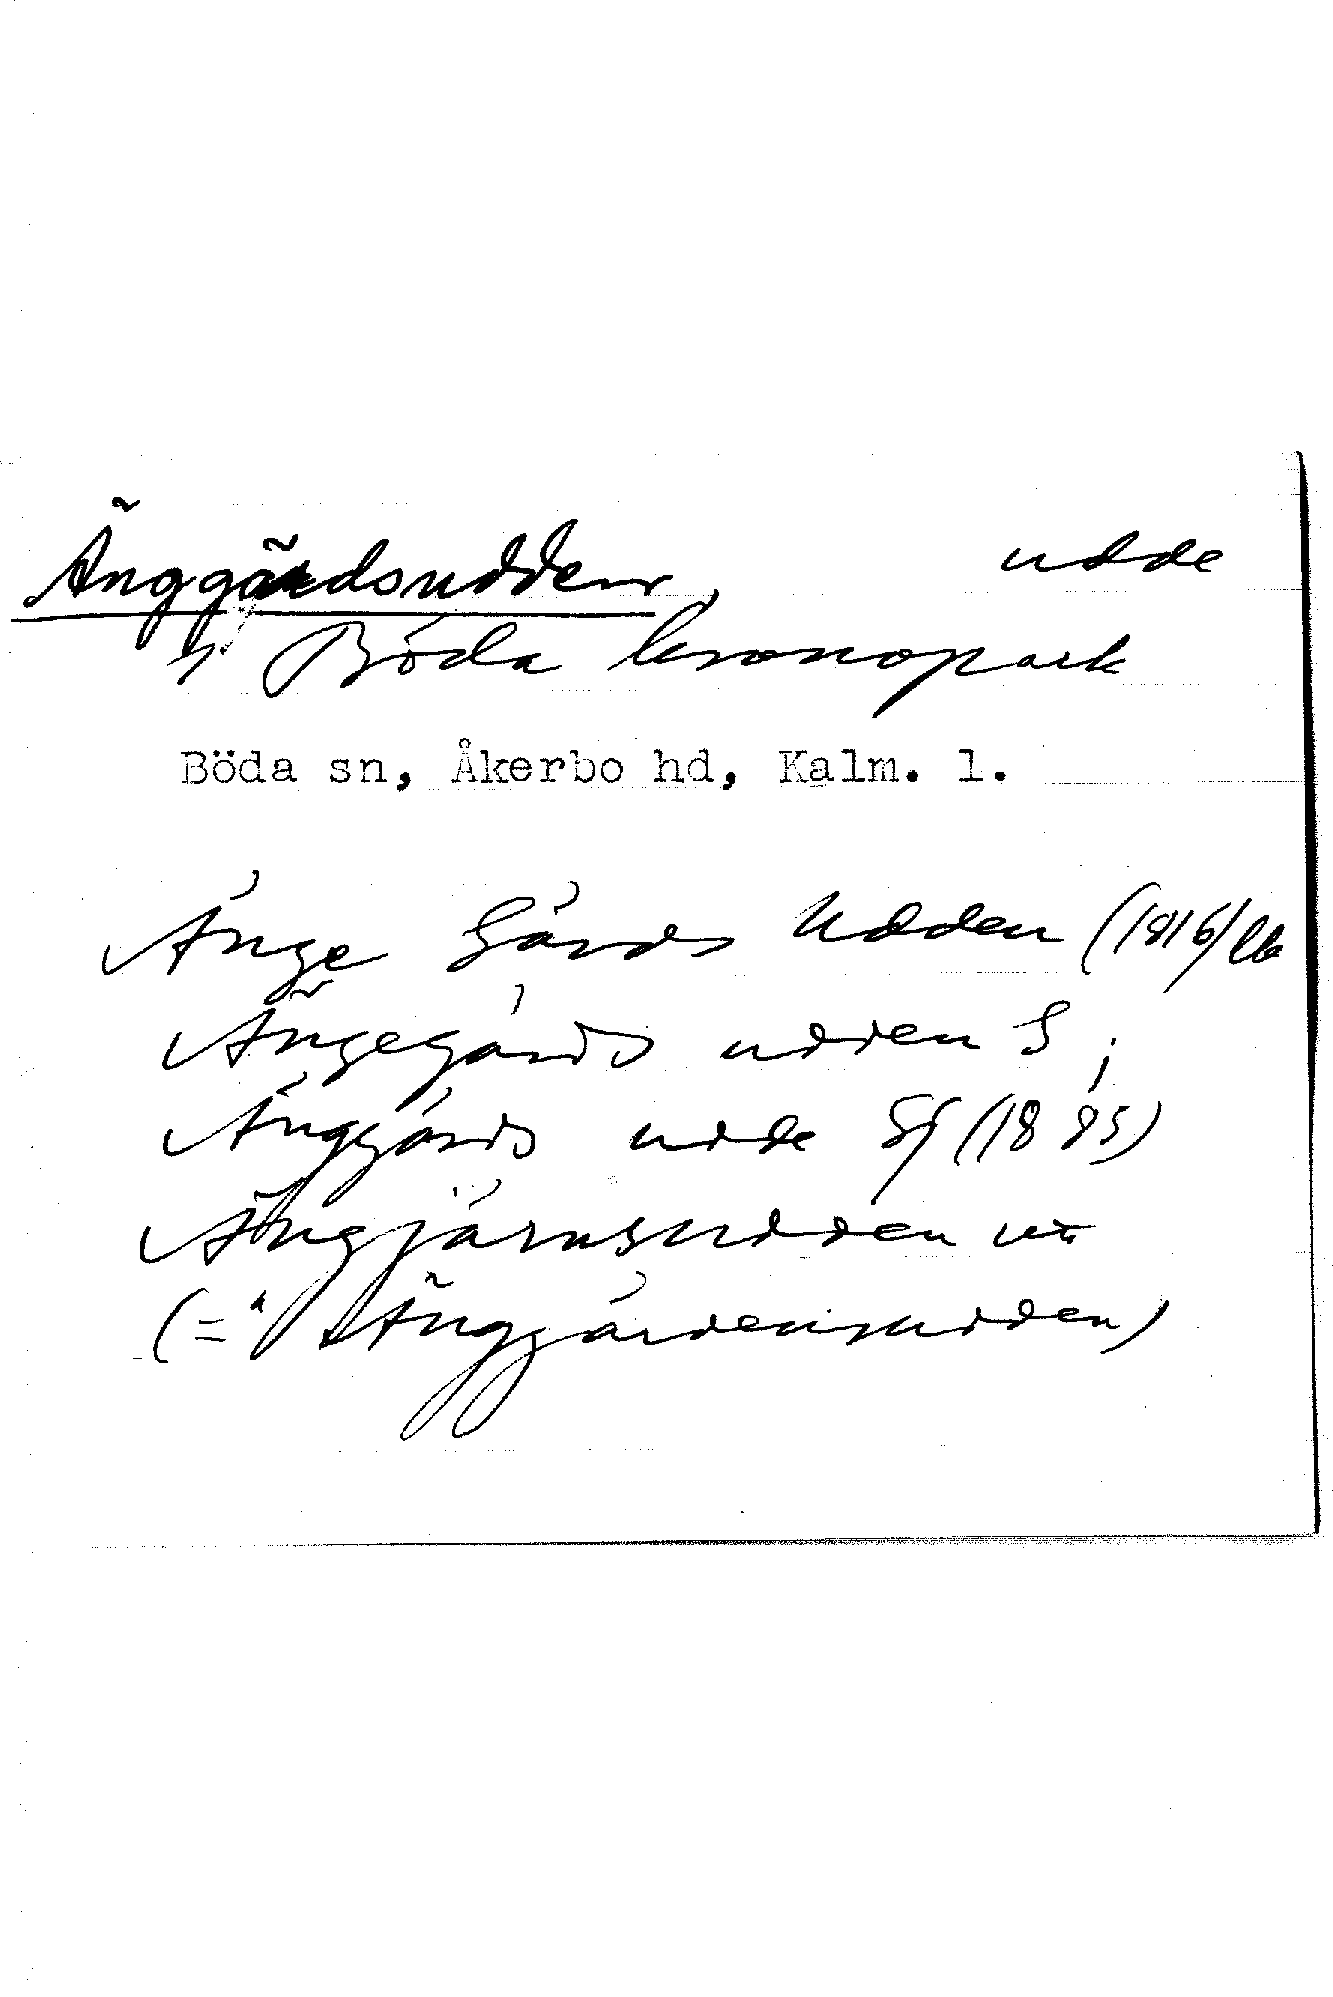 Änggärdsudden, udde
i Böda kronopark
Böda sn, Åkerbo hd, Kalm. l.
Änge Gårds Udden (1816/
Ängegårds udden G ;
Änggårds udde Gf (1895)
Ängjärnsudden
(= Änggärdensudden)